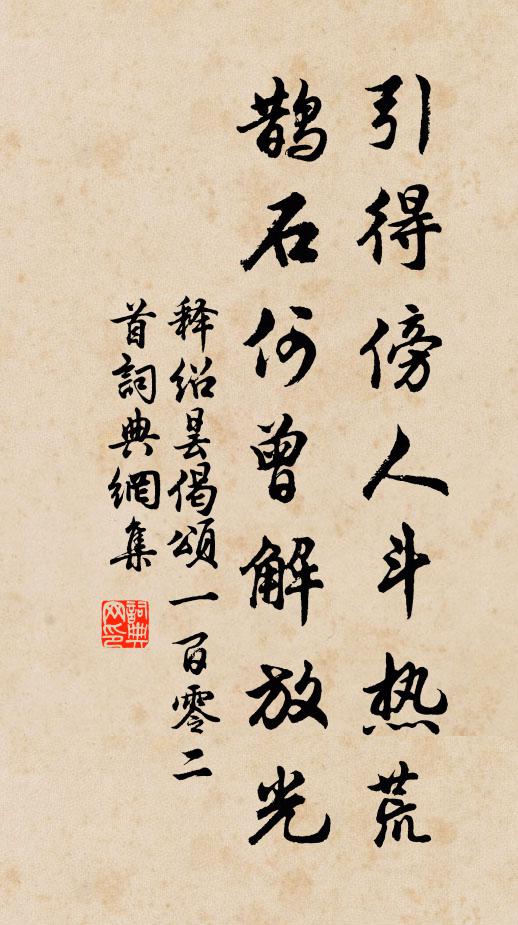 引得傍人斗热荒
鹊石何曾解放光
释绍昙偈頌一百零二
首詞典網集
詞典网印